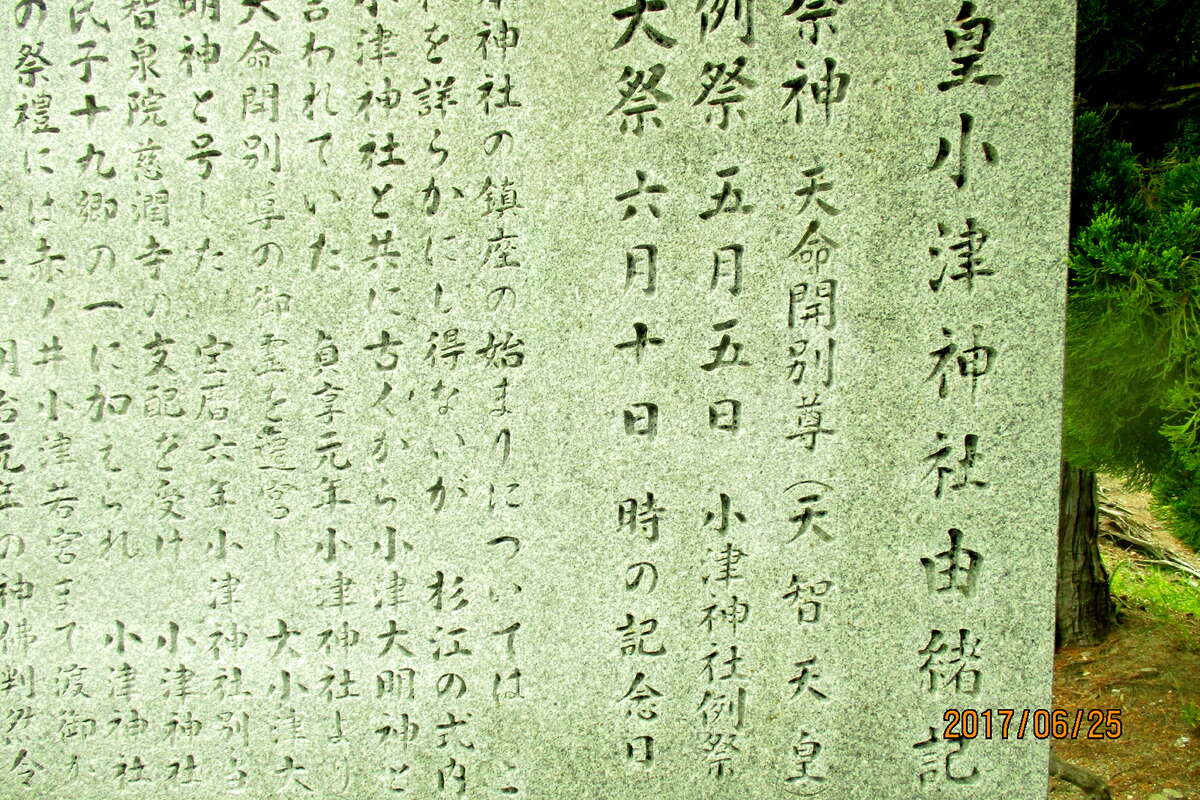 皇小津神社由緒記
祭神 天命開別尊（天智天皇）
例祭 五月五日 小津神社例祭
大祭 六月十日 時の記念日
神社の鎮座の始まりについては
を詳らかにし得ないが 杉江の式内
小津神社と共に古くから小津大明神と
言われていた 貞享元年小津神社より
天命開別尊の御霊を遷宮し 大小津大
明神と号した 宝暦六年小津神社別当
智泉院慈潤寺の支配を受け 小津神社
氏子十九郷の一に加えられ 小津神社
の祭禮には赤ノ井小津若宮まで渡御
明治元年の神佛判然令
2017/06/25